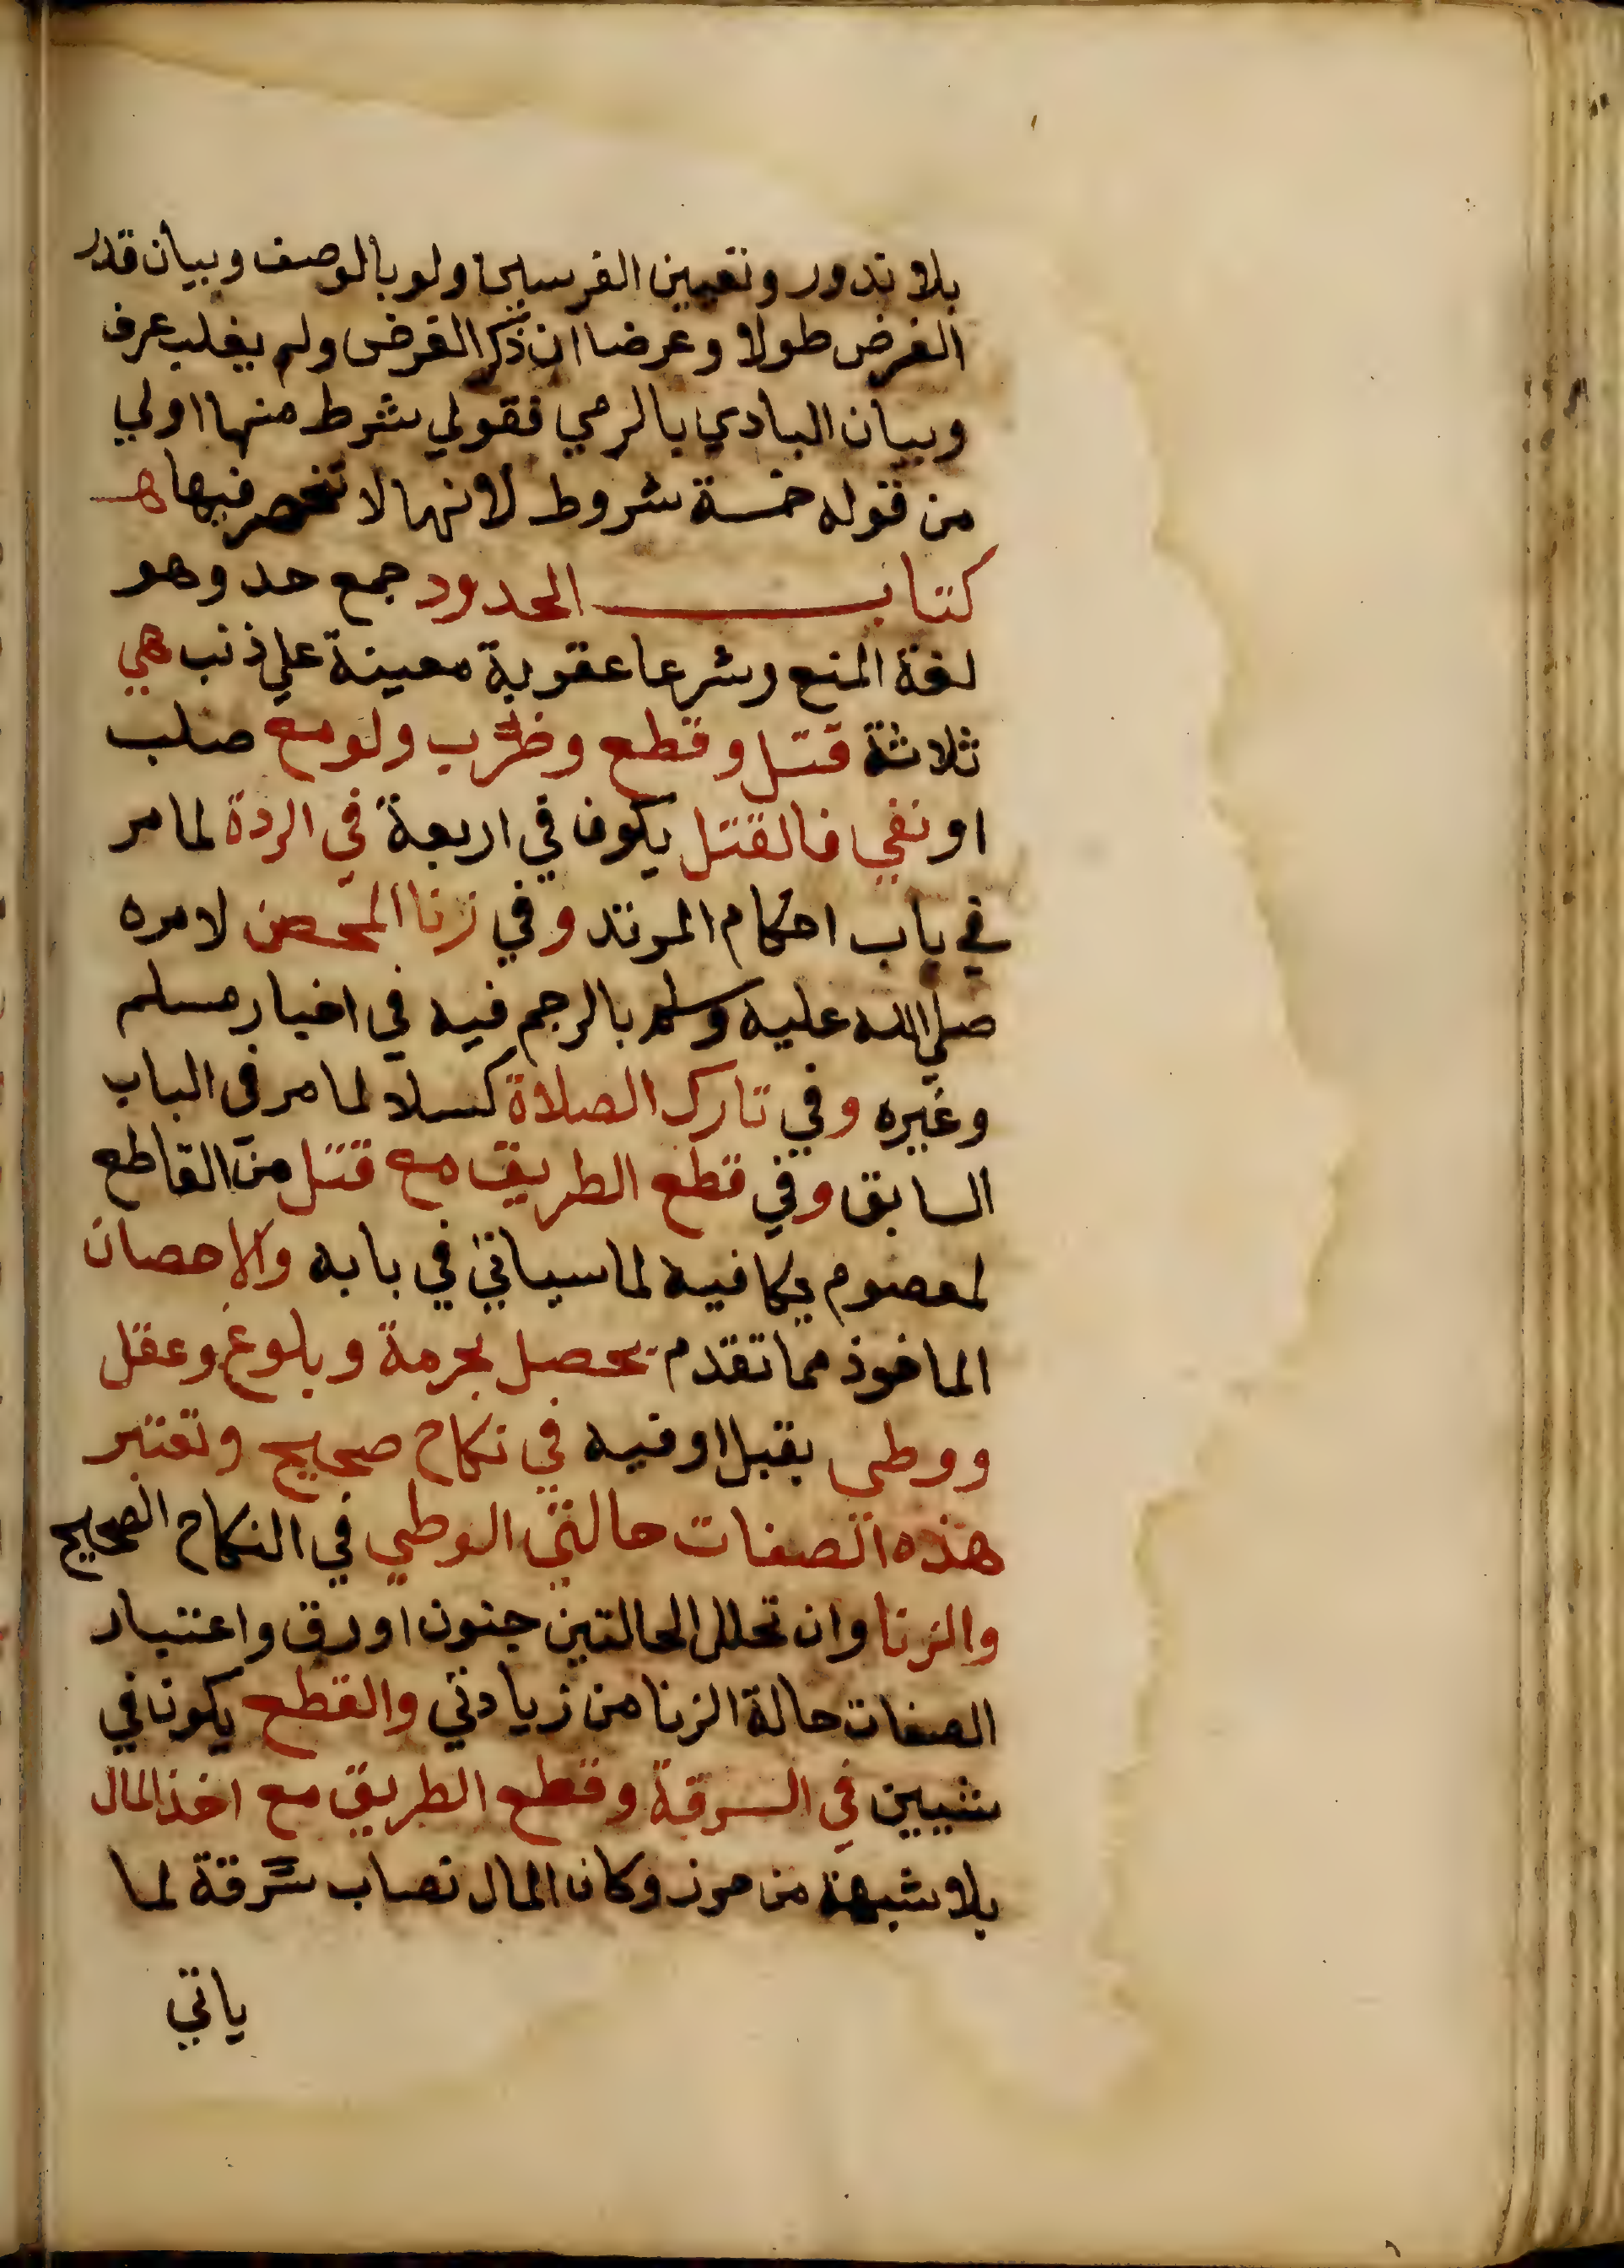 بلا ندور وتعيين الفرسين ولو بالوصف وبيان قدر
الغرض طولا وعرضا ان ذكر الغرض ولم يغلب عرف
وبيان البادي بالرمي فقولي شرط منها اولي
من قوله خمسة شروط لانها لا تنحصر فيها هـ
كتاب الحدود جمع حد وهو
لغة المنع وشرعا عقوبة معينة علي ذنب هي
ثلاثة قتل وقطع وضرب ولو مع صلب
او نفي فالقتل يكون في اربعة في الردة لما مر
في باب احكام المرتد وفي زنا المحصن لامره
صلي الله عليه وسلم بالرجم فيه في اخبار مسلم
وغيره وفي تارك الصلاة كسلا لما مر في الباب
السابق وفي قطع الطريق مع قتل من القاطع
لمعصوم يكافيه لما سياتي في بابه والاحصان
الماخوذ مما تقدم يحصل بحرمة وبلوغ وعقل
ووطي بقبل او فيه في نكاح صحيح وتعتبر
هذه الصفات حالتي الوطي في النكاح الصحيح
والزنا وان تخلل الحالتين جنون او رق واعتبار
الصفات حالة الزنا من زيادتي والقطع يكون في
شيين في السرقة وقطع الطريق مع اخذ المال
بلا شبهة من حرز وكان المال نصاب سرقة لما
ياتي